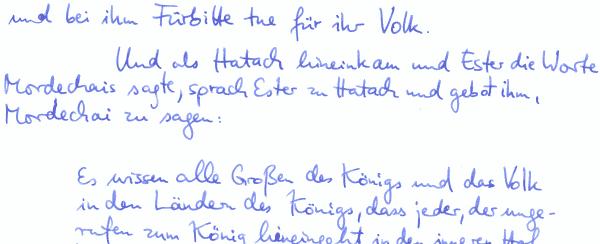 und bei ihm Fürbitte tue für ihr Volk.
Und als Hatach hineinkam und Ester die Worte
Mordechais sagte, sprach Ester zu Hatach und gebot ihm,
Mordechai zu sagen:
Es wissen alle Großen des Königs und das Volk
in den Ländern des Königs, dass jeder, der unge-
rufen zum König hineingeht in den inneren Hof